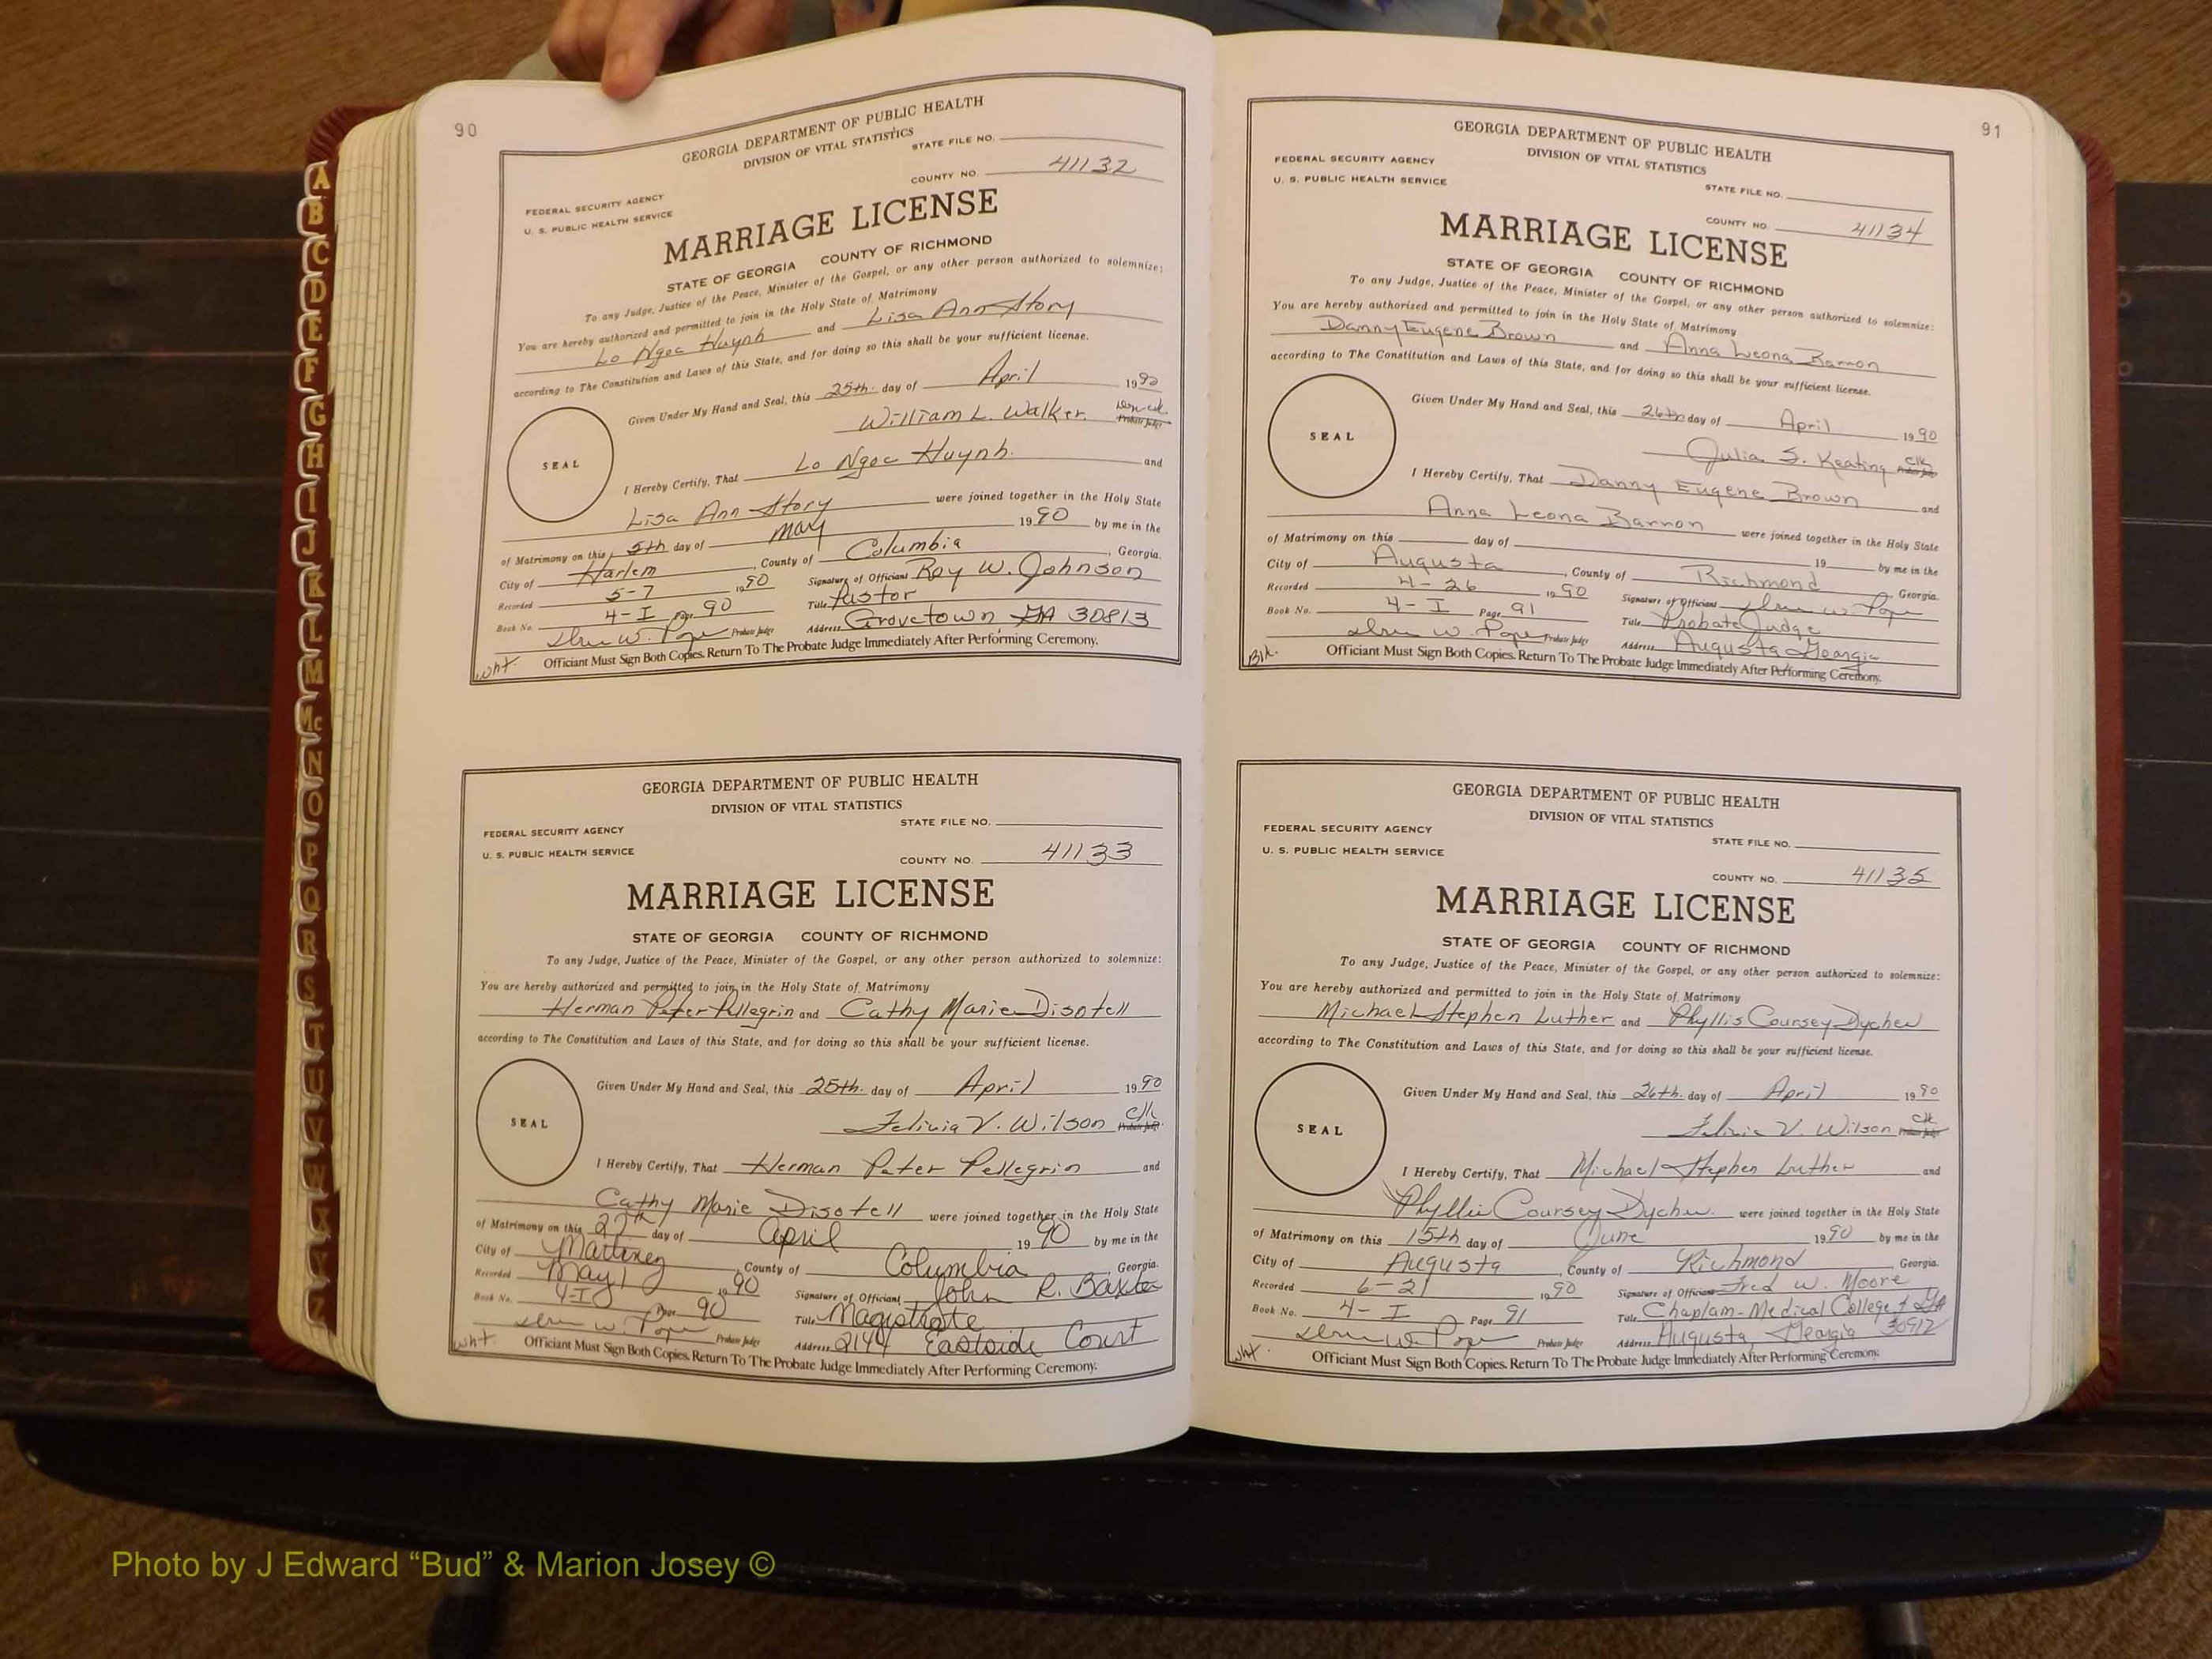 90
GEORGIA DEPARTMENT OF PUBLIC HEALTH
DIVISION OF VITAL STATISTICS
STATE FILE NO.
FEDERAL SECURITY AGENCY
U. S. PUBLIC HEALTH SERVICE
COUNTY NO. 41132
MARRIAGE LICENSE
STATE OF GEORGIA COUNTY OF RICHMOND
To any Judge, Justice of the Peace, Minister of the Gospel, or any other person authorized to solemnize:
You are hereby authorized and permitted to join in the Holy State of Matrimony
Lo Ngoc Huynh and Lisa Ann Story
according to The Constitution and Laws of this State, and for doing so this shall be your sufficient license.
Given Under My Hand and Seal, this 25th. day of April 1990
William L. Walker Probate Judge
SEAL
I Hereby Certify, That Lo Ngoc Huynh. and
Lisa Ann Story were joined together in the Holy State
of Matrimony on this 5th day of May 1990 by me in the
City of Harlem, County of Columbia, Georgia.
Recorded 5-7 1990 Signature of Officiant Roy W. Johnson
Book No. 4-I Page 90 Title Pastor
Probate Judge Address Grovetown GA 30813
wht Officiant Must Sign Both Copies. Return To The Probate Judge Immediately After Performing Ceremony.
GEORGIA DEPARTMENT OF PUBLIC HEALTH
DIVISION OF VITAL STATISTICS
STATE FILE NO.
FEDERAL SECURITY AGENCY
U. S. PUBLIC HEALTH SERVICE
COUNTY NO. 41133
MARRIAGE LICENSE
STATE OF GEORGIA COUNTY OF RICHMOND
To any Judge, Justice of the Peace, Minister of the Gospel, or any other person authorized to solemnize:
You are hereby authorized and permitted to join in the Holy State of Matrimony
Herman Peter Pellegrin and Cathy Marie Disotell
according to The Constitution and Laws of this State, and for doing so this shall be your sufficient license.
Given Under My Hand and Seal, this 25th. day of April 1990
Felicia V. Wilson Clk Probate Judge
SEAL
I Hereby Certify, That Herman Peter Pellegrin and
Cathy Marie Disotell were joined together in the Holy State
of Matrimony on this 27th day of April 1990 by me in the
City of Martinez, County of Columbia, Georgia.
Recorded May 1 1990 Signature of Officiant John R. Baxter
Book No. 4-I Page 90 Title Magistrate
Probate Judge Address 2144 Eastside Court
wht. Officiant Must Sign Both Copies. Return To The Probate Judge Immediately After Performing Ceremony.
91
GEORGIA DEPARTMENT OF PUBLIC HEALTH
DIVISION OF VITAL STATISTICS
FEDERAL SECURITY AGENCY
U. S. PUBLIC HEALTH SERVICE
STATE FILE NO.
COUNTY NO. 41134
MARRIAGE LICENSE
STATE OF GEORGIA COUNTY OF RICHMOND
To any Judge, Justice of the Peace, Minister of the Gospel, or any other person authorized to solemnize:
You are hereby authorized and permitted to join in the Holy State of Matrimony
Danny Eugene Brown and Anna Leona Barnon
according to The Constitution and Laws of this State, and for doing so this shall be your sufficient license.
Given Under My Hand and Seal, this 26th day of April 1990
Julia S. Keating Clk Probate Judge
SEAL
I Hereby Certify, That Danny Eugene Brown and
Anna Leona Barnon were joined together in the Holy State
of Matrimony on this day of 19 by me in the
City of Augusta, County of Richmond Georgia.
Recorded 4-26 1990 Signature of Officiant
Book No. 4-I Page 91 Title Probate Judge
Probate Judge Address Augusta Georgia
Blk. Officiant Must Sign Both Copies. Return To The Probate Judge Immediately After Performing Ceremony.
GEORGIA DEPARTMENT OF PUBLIC HEALTH
DIVISION OF VITAL STATISTICS
FEDERAL SECURITY AGENCY
U. S. PUBLIC HEALTH SERVICE
STATE FILE NO.
COUNTY NO. 41135
MARRIAGE LICENSE
STATE OF GEORGIA COUNTY OF RICHMOND
To any Judge, Justice of the Peace, Minister of the Gospel, or any other person authorized to solemnize:
You are hereby authorized and permitted to join in the Holy State of Matrimony
Michael Stephen Luther and Phyllis Coursey Dyches
according to The Constitution and Laws of this State, and for doing so this shall be your sufficient license.
Given Under My Hand and Seal, this 26th. day of April 1990
Felicia V. Wilson Clk Probate Judge
SEAL
I Hereby Certify, That Michael Stephen Luther and
Phyllis Coursey Dyches were joined together in the Holy State
of Matrimony on this 15th day of June 1990 by me in the
City of Augusta, County of Richmond Georgia.
Recorded 6-21 1990 Signature of Officiant Fred W. Moore
Book No. 4-I Page 91 Title Chaplain-Medical College of GA
Probate Judge Address Augusta, Georgia 30912
wht. Officiant Must Sign Both Copies. Return To The Probate Judge Immediately After Performing Ceremony.
A
B
C
D
E
F
G
H
I
J
K
L
M
Mc
N
O
P
Q
R
S
T
U
V
W
X
Y
Z
Photo by J Edward “Bud” & Marion Josey ©